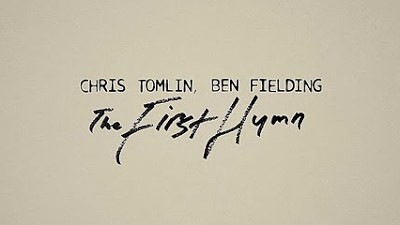 CHRIS TOMLIN, BEN FIELDING
The First Hymn